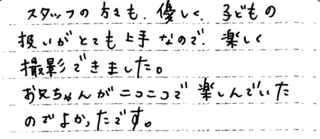 スタッフの方々も、優しく、子どもの
扱いがとても上手なので、楽しく
撮影できました。
お兄ちゃんがニコニコで楽しんでいた
のでよかったです。